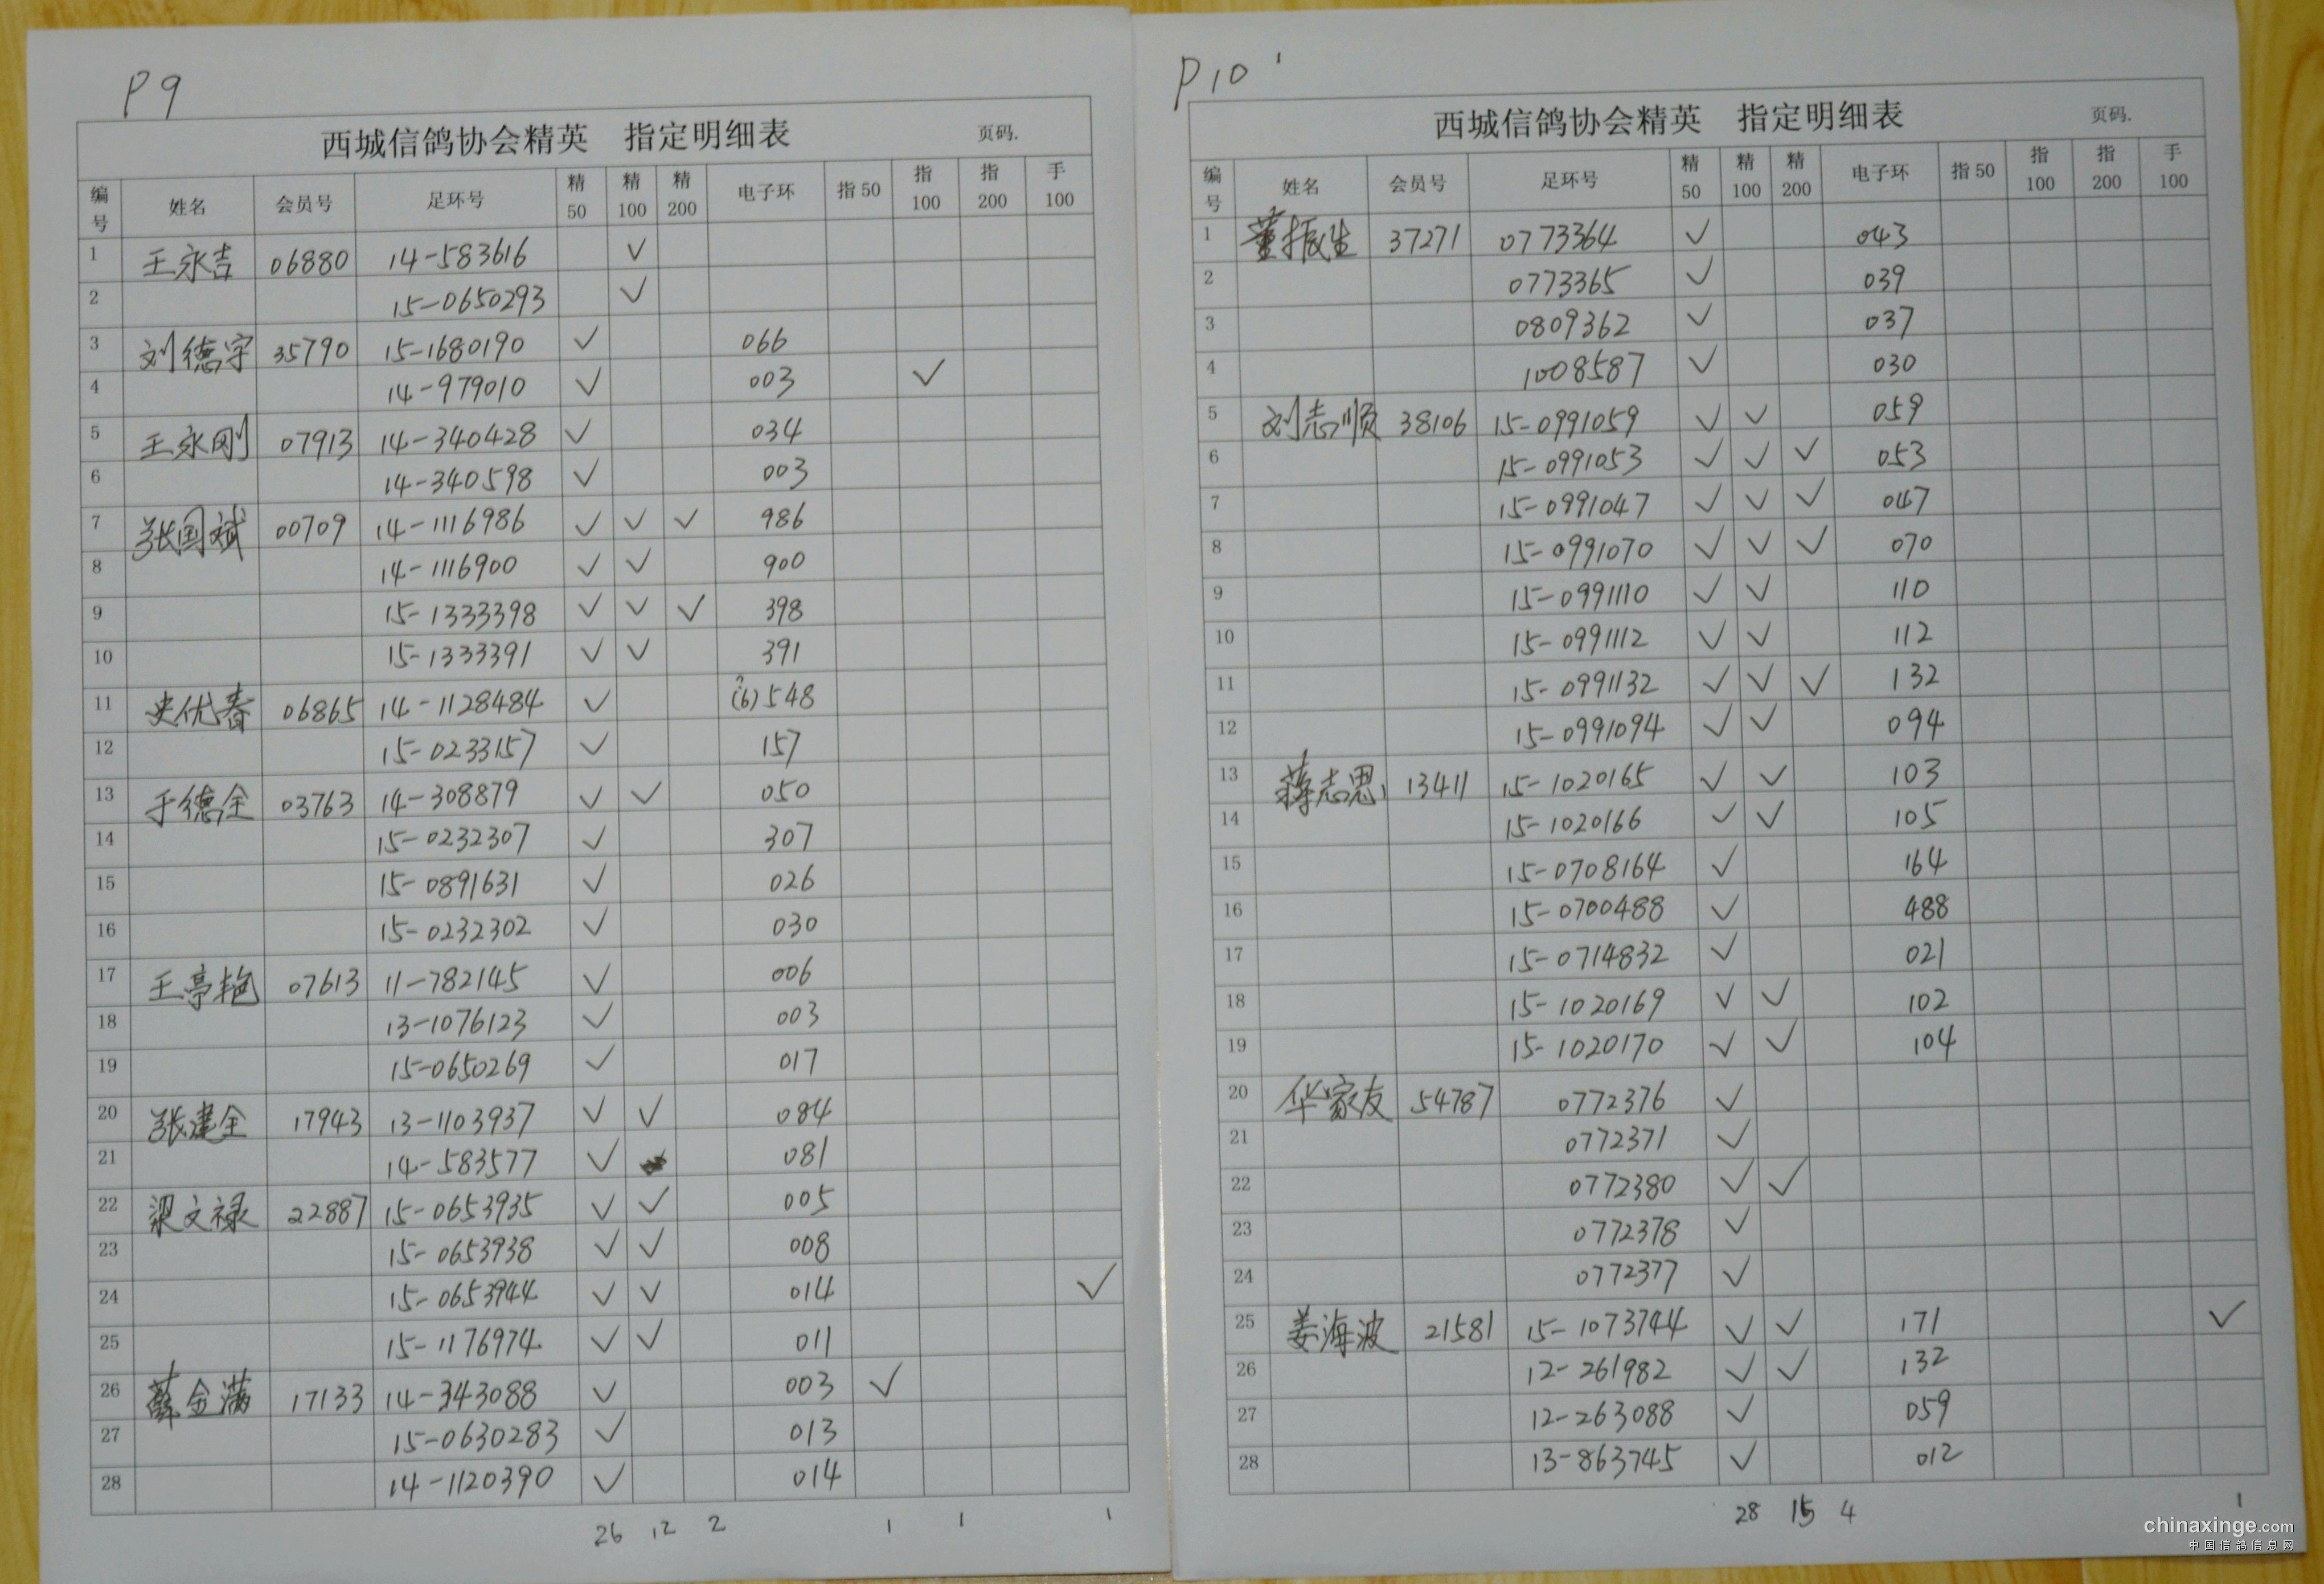 P9
西城信鸽协会精英 指定明细表 页码.
编号 姓名 会员号 足环号 精50 精100 精200 电子环 指50 指100 指200 手100
1 王永吉 06880 14-583616 ✓
2 15-0650293 ✓
3 刘德宇 35790 15-1680190 ✓ 066
4 14-979010 ✓ 003 ✓
5 王永刚 07913 14-340428 ✓ 034
6 14-340598 ✓ 003
7 张国斌 00709 14-1116986 ✓ ✓ ✓ 986
8 14-1116900 ✓ ✓ 900
9 15-1333398 ✓ ✓ ✓ 398
10 15-1333391 ✓ ✓ 391
11 史优春 06865 14-1128484 ✓ (6)548
12 15-0233157 ✓ 157
13 于德全 03763 14-308879 ✓ ✓ 050
14 15-0232307 ✓ 307
15 15-0891631 ✓ 026
16 15-0232302 ✓ 030
17 王亭艳 07613 11-782145 ✓ 006
18 13-1076123 ✓ 003
19 15-0650269 ✓ 017
20 张建全 17943 13-1103937 ✓ ✓ 084
21 14-583577 ✓ 081
22 梁文禄 22887 15-0653935 ✓ ✓ 005
23 15-0653938 ✓ ✓ 008
24 15-0653944 ✓ ✓ 014 ✓
25 15-1176974 ✓ ✓ 011
26 薛金满 17133 14-343088 ✓ 003 ✓
27 15-0630283 ✓ 013
28 14-1120390 ✓ 014
26 12 2 1 1 1
P10
西城信鸽协会精英 指定明细表 页码.
编号 姓名 会员号 足环号 精50 精100 精200 电子环 指50 指100 指200 手100
1 董振生 37271 0773364 ✓ 043
2 0773365 ✓ 039
3 0809362 ✓ 037
4 1008587 ✓ 030
5 刘志顺 38106 15-0991059 ✓ ✓ 059
6 15-0991053 ✓ ✓ ✓ 053
7 15-0991047 ✓ ✓ ✓ 047
8 15-0991070 ✓ ✓ ✓ 070
9 15-0991110 ✓ ✓ 110
10 15-0991112 ✓ ✓ 112
11 15-0991132 ✓ ✓ ✓ 132
12 15-0991094 ✓ ✓ 094
13 蒋志恩 13411 15-1020165 ✓ ✓ 103
14 15-1020166 ✓ ✓ 105
15 15-0708164 ✓ 164
16 15-0700488 ✓ 488
17 15-0714832 ✓ 021
18 15-1020169 ✓ ✓ 102
19 15-1020170 ✓ ✓ 104
20 华家友 54787 0772376 ✓
21 0772371 ✓
22 0772380 ✓ ✓
23 0772378 ✓
24 0772377 ✓
25 姜海波 21581 15-1073744 ✓ ✓ 171 ✓
26 12-261982 ✓ ✓ 132
27 12-263088 ✓ 059
28 13-863745 ✓ 012
28 15 4 1
chinaxinge.com
中国信鸽信息网